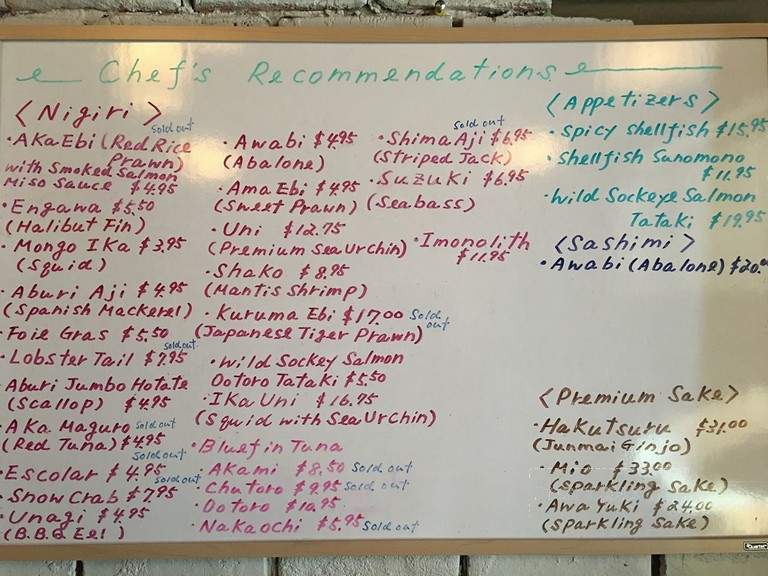 Chef's Recommendations
<Nigiri>
sold out
• Aka Ebi (Red Rice
Prawn)
with Smoked Salmon
Miso Sauce $4.95
• Engawa $5.50
(Halibut Fin)
• Mongo Ika $3.95
(Squid)
• Aburi Aji $4.95
(Spanish Mackerel)
• Foie Gras $5.50
sold out
• Lobster Tail $7.95
Aburi Jumbo Hotate
(Scallop) $4.95
• Aka Maguro sold out
(Red Tuna) $4.95
sold out
• Escolar $4.95
sold out
• Snow Crab $7.95
• Unagi $4.95
(B.B.Q Eel)
• Awabi $4.95
(Abalone)
• Ama Ebi $4.95
(Sweet Prawn)
• Uni $12.75
(Premium Sea Urchin)
• Shako $8.95
(Mantis Shrimp)
• Kuruma Ebi $17.00 Sold out
(Japanese Tiger Prawn)
• Wild Sockey Salmon
Ootoro Tataki $5.50
• Ika Uni $16.75
(Squid with Sea Urchin)
• Bluefin Tuna
• Akami $8.50 Sold out
• Chutoro $9.95 Sold out
• Ootoro $10.95
• Nakaochi $5.95 Sold out
sold out
• Shima Aji $6.95
(Striped Jack)
• Suzuki $6.95
(Seabass)
• Imonolith
$11.95
<Appetizers>
• Spicy Shellfish $15.95
• Shellfish Sunomono
$11.95
• Wild Sockeye Salmon
Tataki $19.95
<Sashimi>
• Awabi (Abalone) $20.00
<Premium Sake>
• Hakutsuru $31.00
(Junmai Ginjo)
• Mio $33.00
(Sparkling Sake)
• Awa Yuki $24.00
(Sparkling Sake)
Quartet